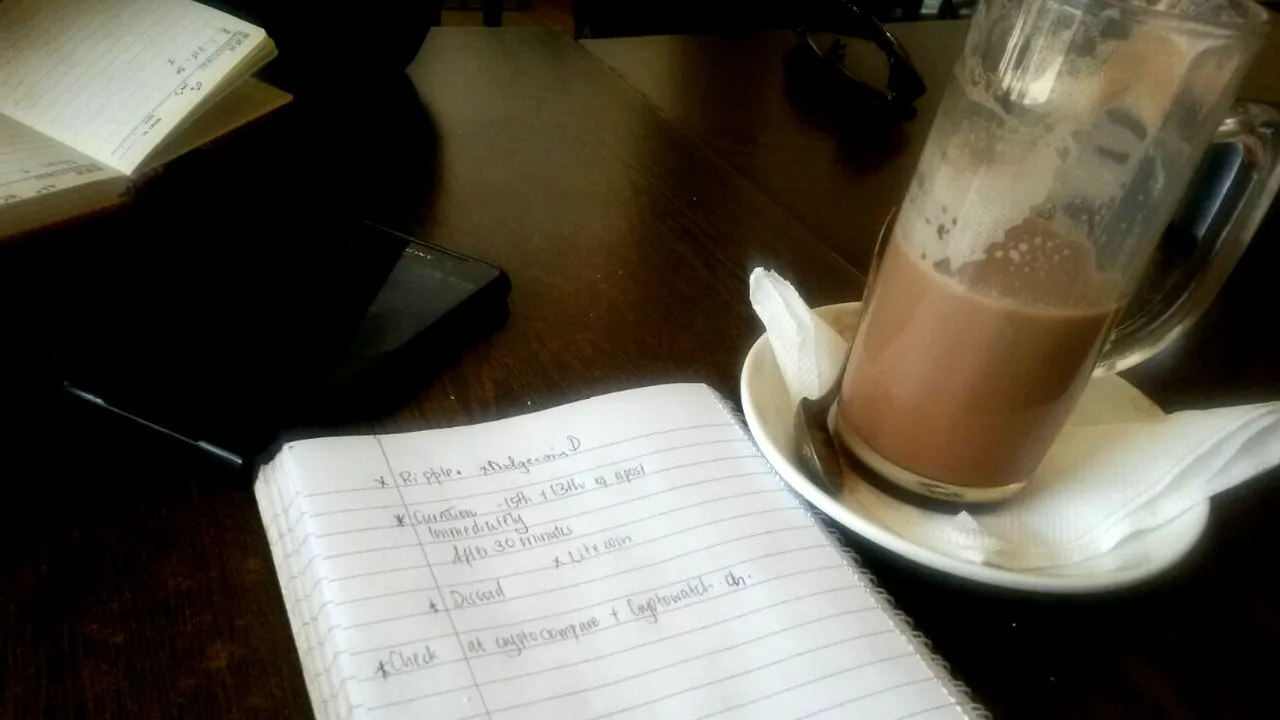 x Ripple. x Dodgecoin D
* Curation -15th + 13th of a post
Immediately
After 30 minutes
x Litecoin
* Discord
* Check at cryptocompare + Cryptowatch.ch.
SONY